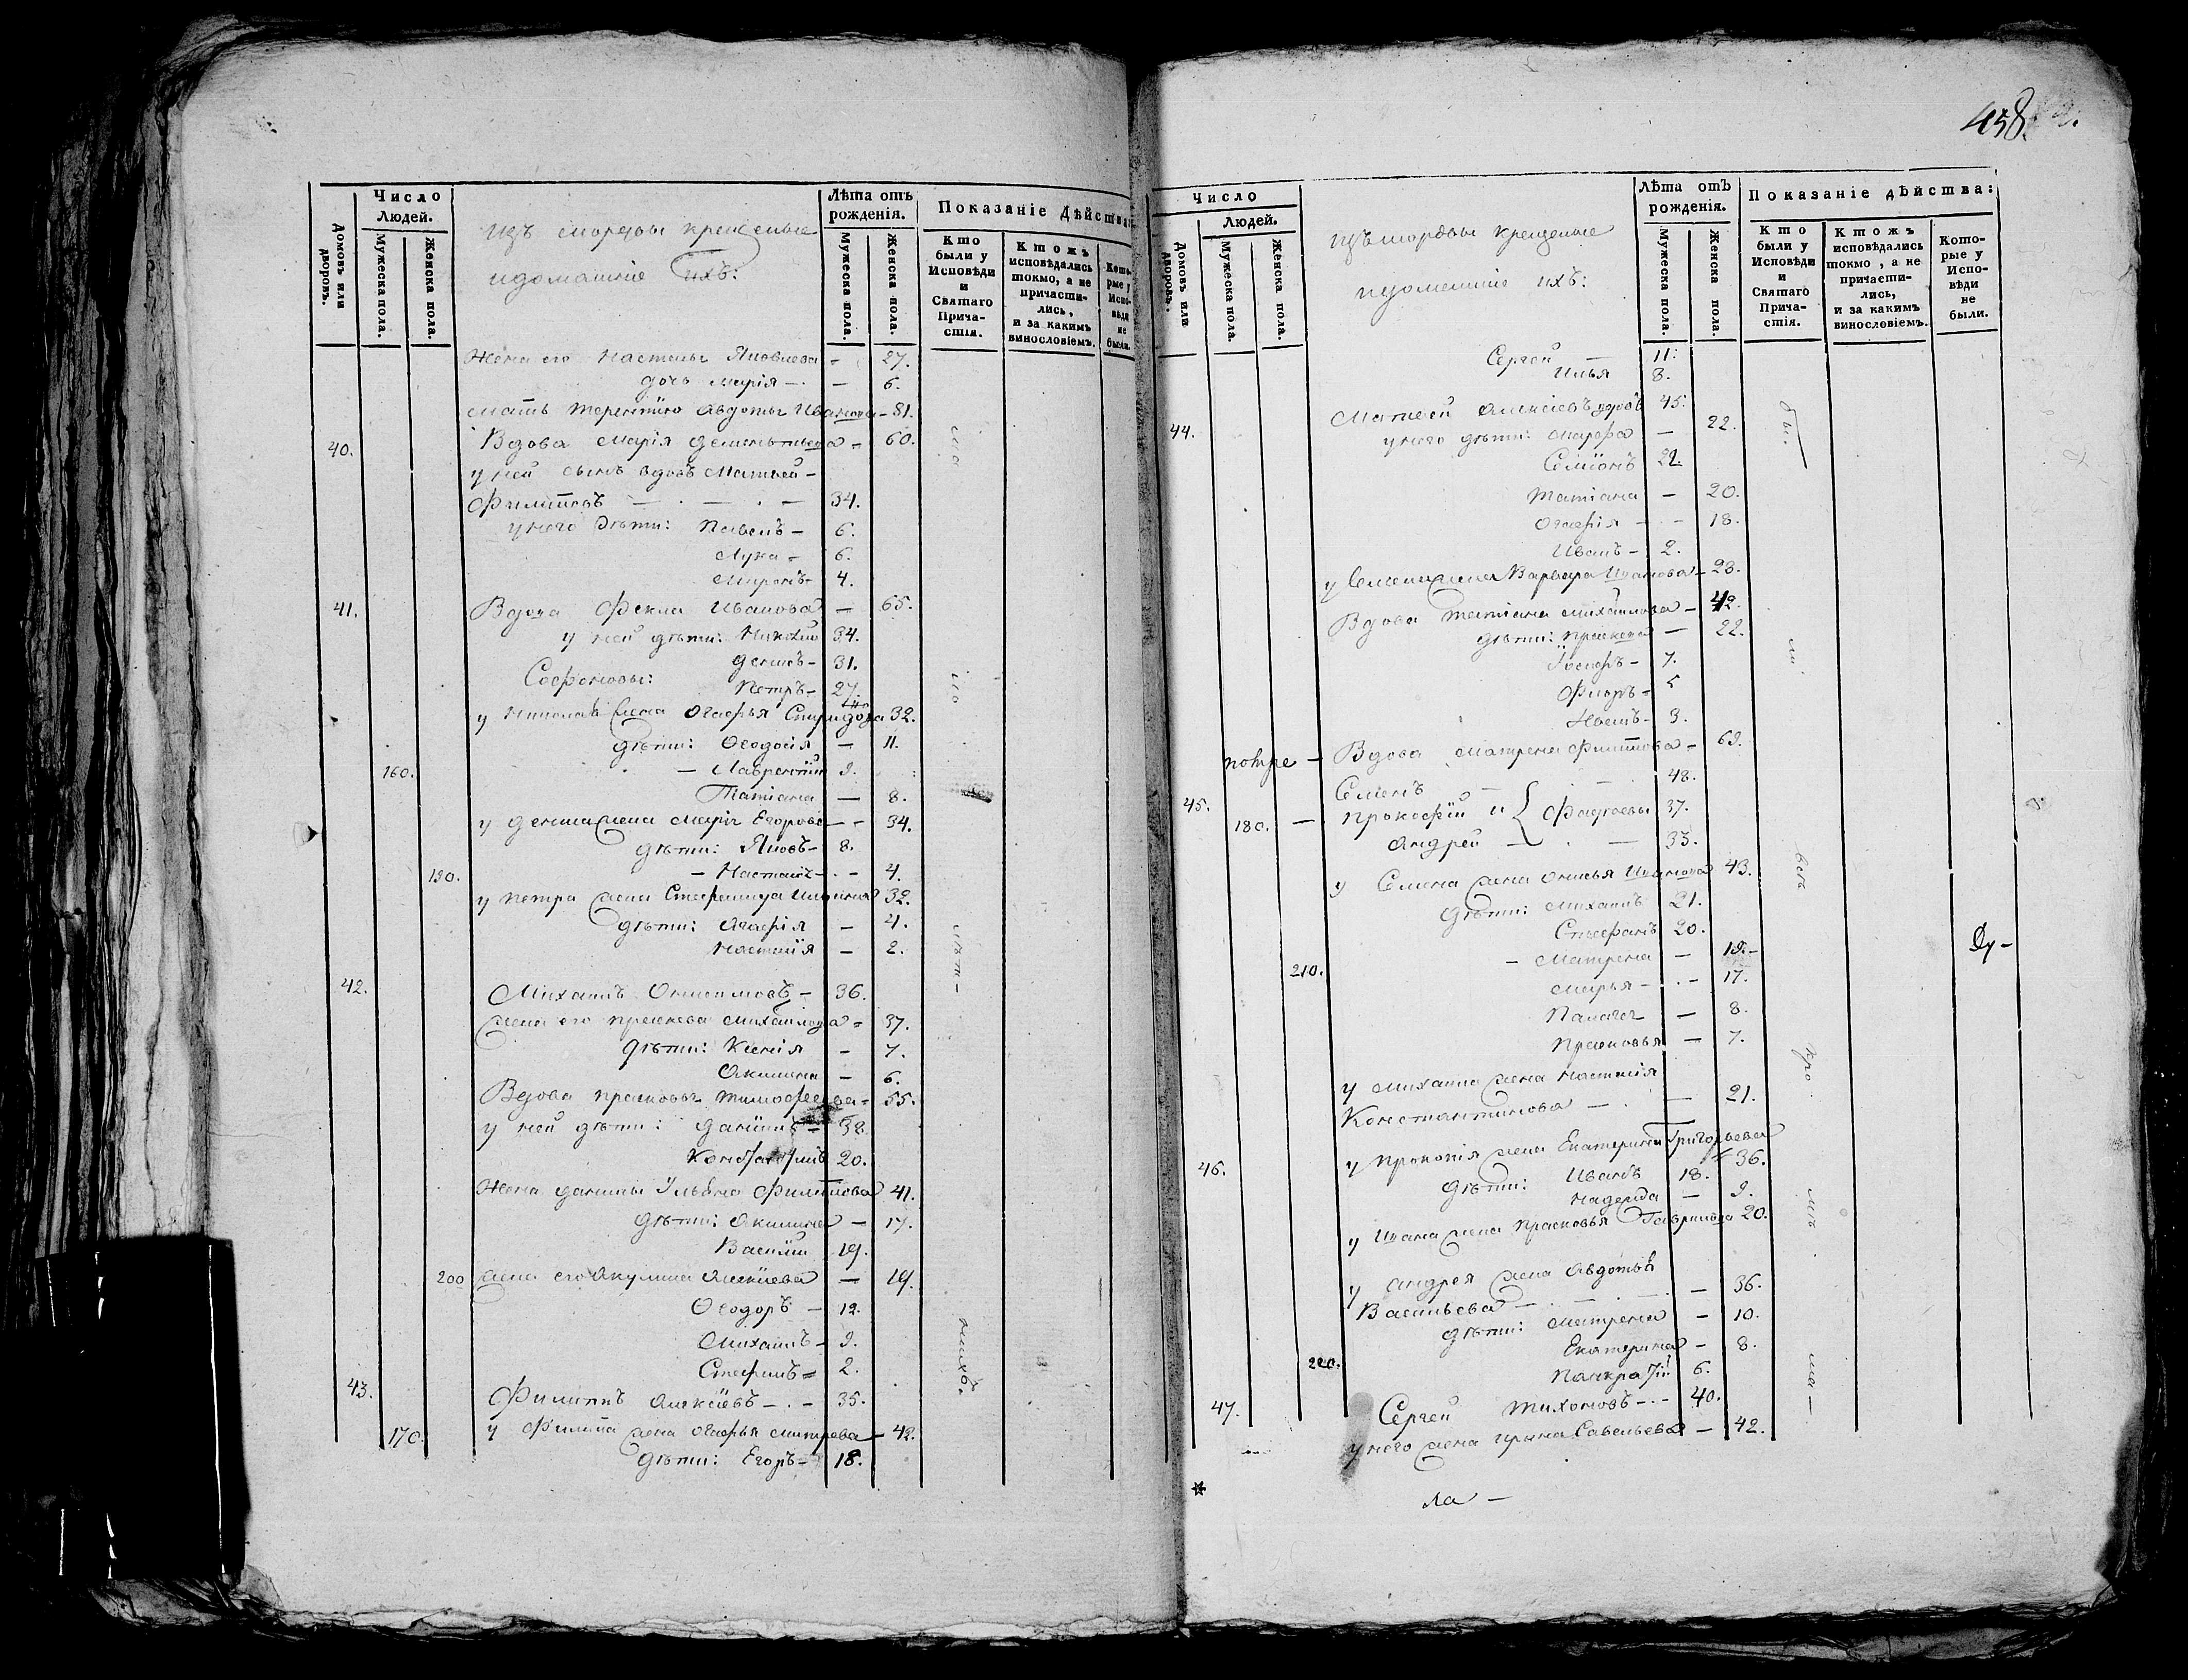 Число
Людей.
Домовъ или дворовъ.
Мужеска пола.
Женска пола.
Изъ мордвы крещеные
и домашніе ихъ:
Лѣта отъ рожденія.
Мужеска пола.
Женска пола.
Показаніе Дѣйства:
Кто были у Исповѣди и Святаго Прича-стія.
Ктожъ исповѣдались токмо, а не причасти-лись, и за какимъ винословіемъ.
Кото-рые у Испо-вѣди не были.
Жена его Настасья Яковлева - 27.
дочь Марія - 6.
Мать Терентію Авдотья Иванова - 81.
40. Вдова Марія Дементьева - 60.
у ней сынъ вдовъ Матвей -
Филиповъ - 34.
у него дѣти: Павелъ - 6.
Лука - 6.
Миронъ - 4.
41. Вдова Фекла Иванова - 65.
у ней дѣти: Николай 34.
Демидъ - 31.
Софоновы: Петръ - 27.
у Николая жена Агафья Спиридова 32.
дѣти: Ѳеодосія - 11.
160. - Лаврентій 9.
Татіана - 8.
у жена Марья Егорова - 34.
дѣти: Яковъ - 8.
190. - Настасія - 4.
у Петра жена Стефанида Ильина 32.
дѣти: Агафія - 4.
Настасія - 2.
42. Михаилъ - 36.
жена его Прасковья Михайлова - 37.
дѣти: Ксенія - 7.
Акилина - 6.
Вдова Прасковья Тимофеева - 55.
у ней дѣти: Данилъ - 38
Константинъ 20.
Жена Данилы Ульяна Филипова 41.
дѣти: Акилина - 17.
Василій 19.
200 жена его Акулина Алексіева - 19.
Ѳеодоръ - 12.
Михаилъ - 9.
Стефанъ - 2.
43. Филиппъ Алексіевъ - 35.
170. у Филипа жена Агафья Дмитрева - 42.
дѣти: Егоръ - 18.
458.
Число
Людей.
Домовъ или дворовъ.
Мужеска пола.
Женска пола.
Изъ мордвы крещеные
и домашніе ихъ:
Лѣта отъ рожденія.
Мужеска пола.
Женска пола.
Показаніе дѣйства:
Кто были у Исповѣди и Святаго Прича-стія.
Ктожъ исповѣдались токмо, а не причасти-лись, и за какимъ винословіемъ.
Кото-рые у Испо-вѣди не были.
Сергей - 11.
Илья 8.
44. Матвей Алексіевъ вдовъ 45.
у него дѣти: Марфа - 22.
Семіонъ 22.
Татіана - 20.
Агафія - 18.
Иванъ - 2.
у Семена жена Варвара Иванова - 23.
Вдова Татіана Михайлова - 42.
дѣти: Прасковья - 22.
Іосифъ - 7.
Флоръ - 5
3.
Вдова Матрена Филипова - 69.
45. Семіонъ - 48.
180. - Прокофій и { Фадѣевы 37.
Андрей - 33.
у Семена жена Анисья Иванова 43.
дѣти: Михаилъ 21.
Стефанъ 20.
210. - Матрена - 19.-
Марья - 17.
Палагея - 8.
Прасковья - 7.
у Михаила жена Настасія
Константинова - 21.
46. у Прокопія жена Екатерина Григорьева 36.
дѣти: Иванъ 18.
Надежда - 9.
у Ивана жена Прасковья Гаврилова 20.
у Андрея жена Авдотья
Васильева - 36.
дѣти: Матрена - 10.
Екатерина - 8.
220. Панкратій 6.
47. Сергей Тихоновъ - 40.
у него жена Ирина Савельева - 42.
ла -